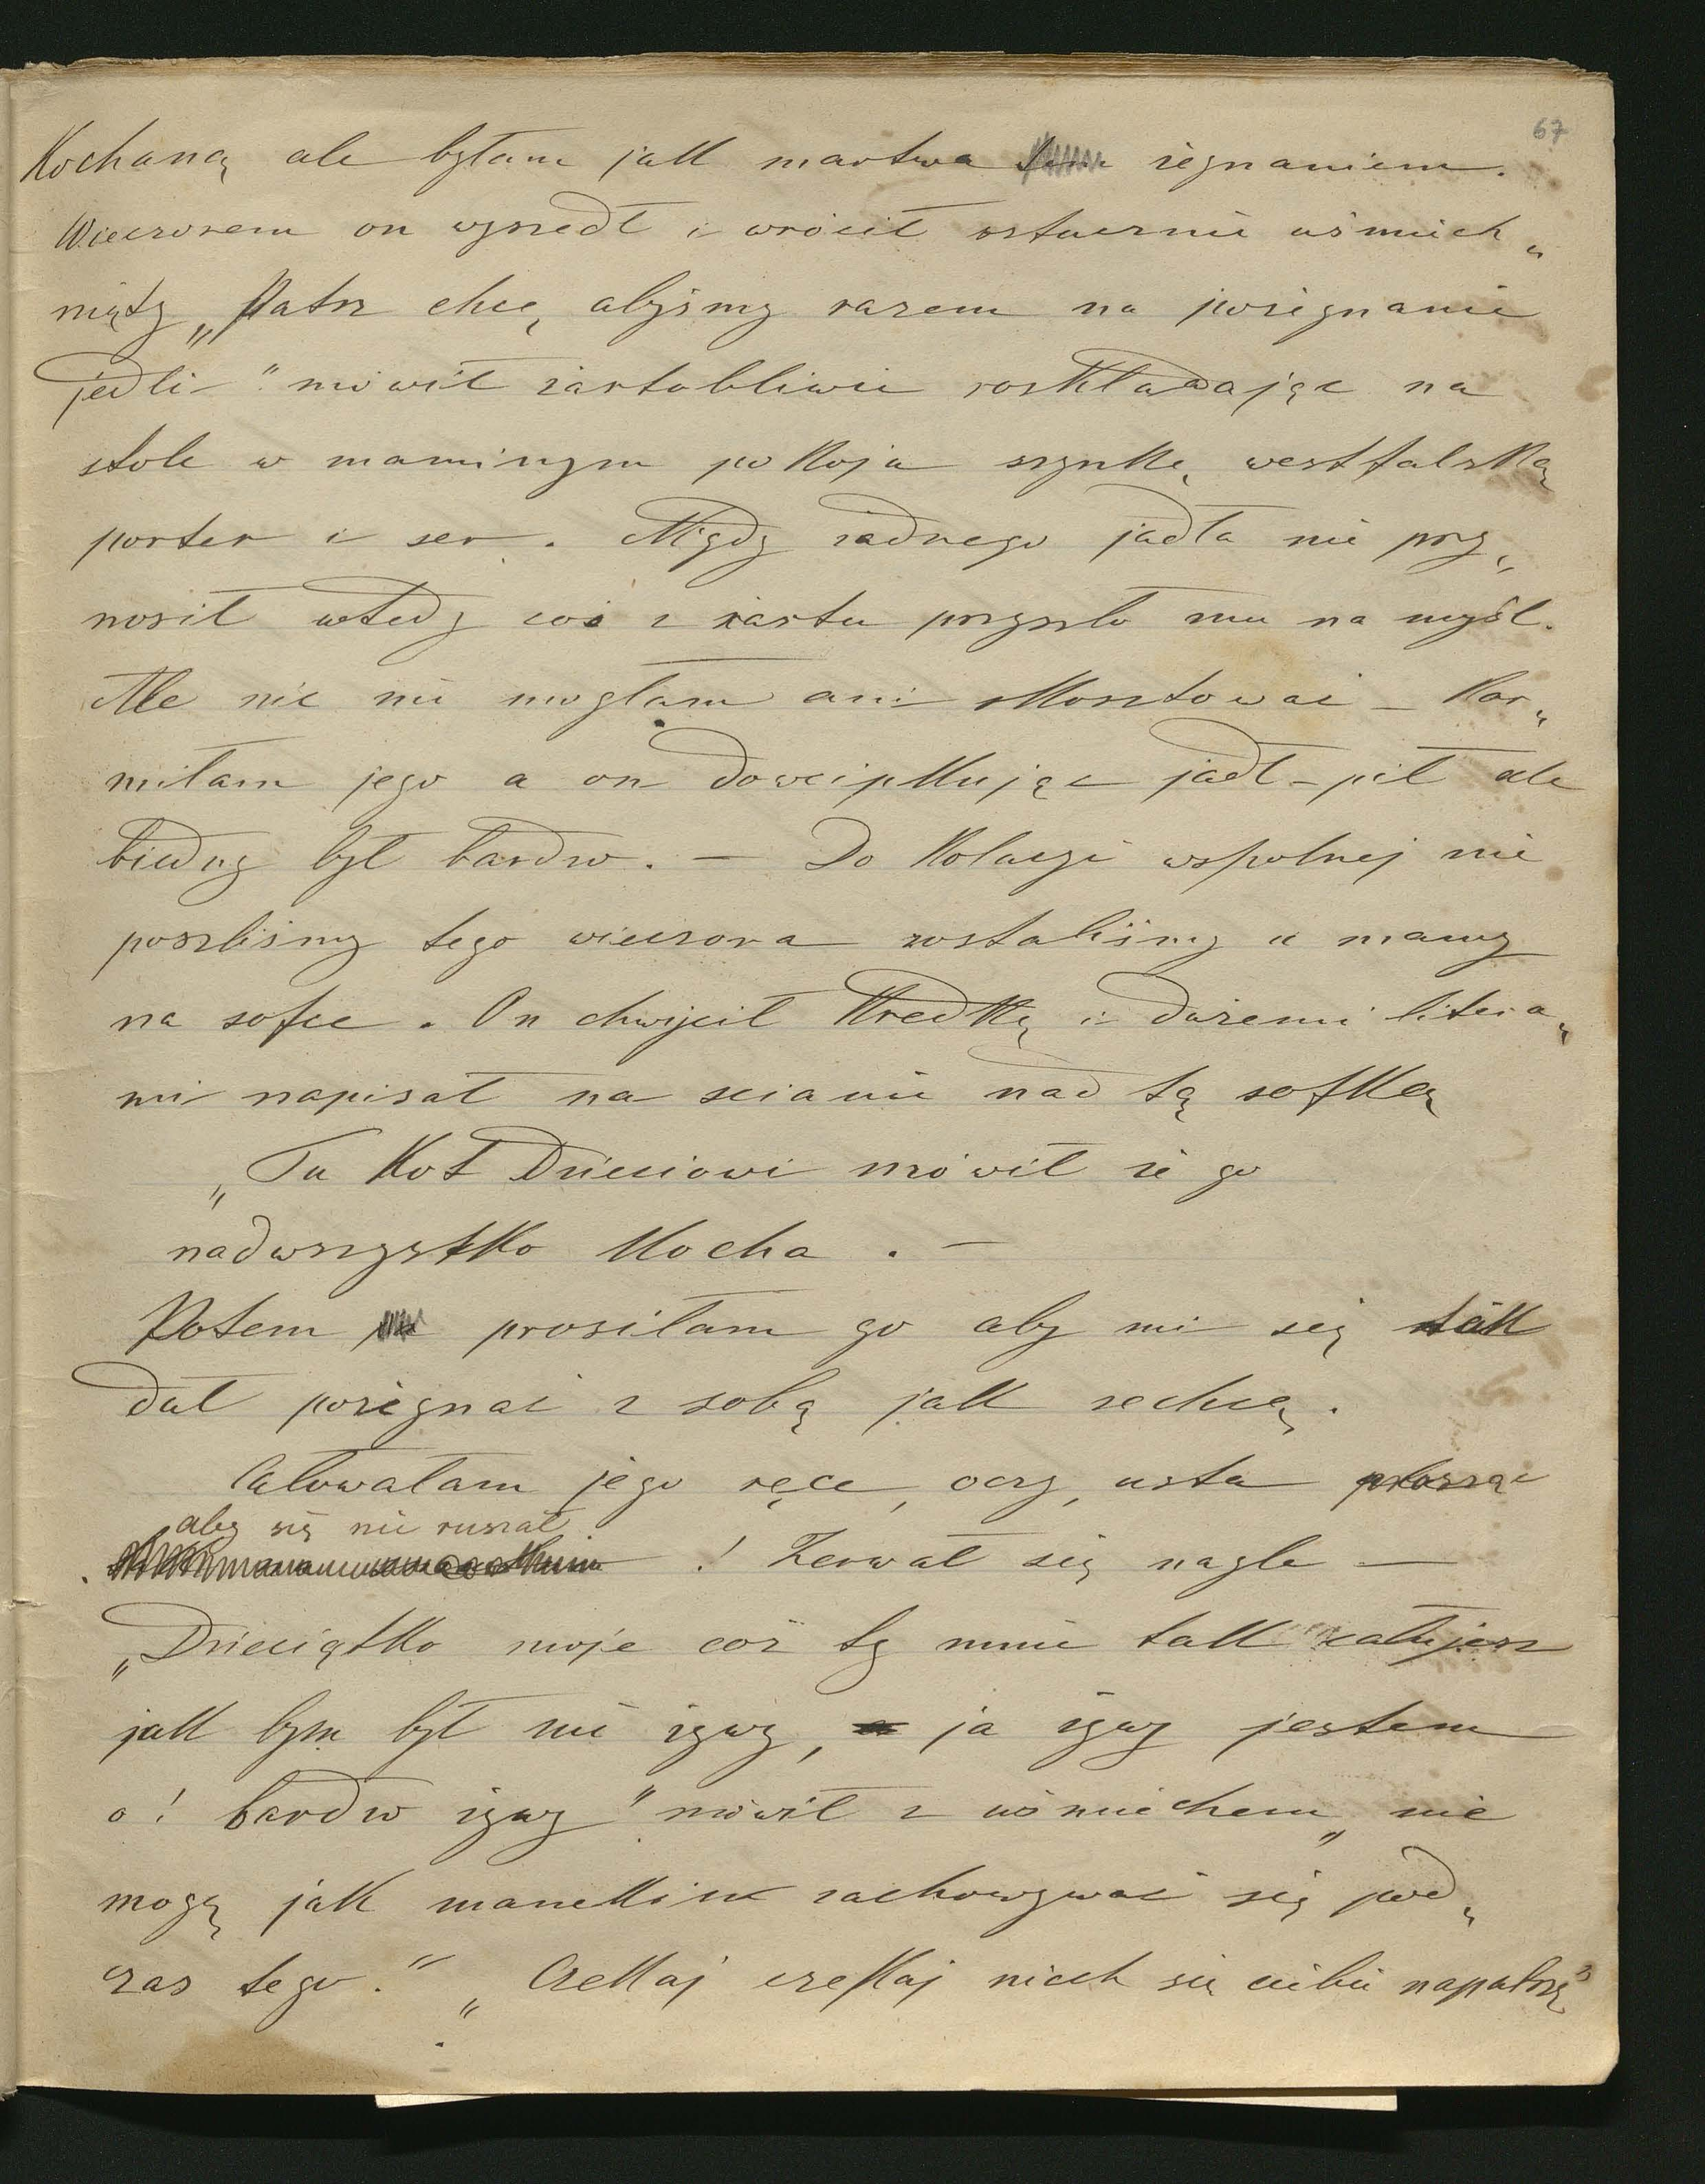 67
Kochaną ale byłam jak martwa żegnaniem.
Wieczorem on wyszedł i wrócił sztucznie uśmiech„
nięty „Patrz chcę, abyśmy razem na pożegnanie
jedli" mówił żartobliwie rozkładając na
stole w maminym pokoju szynkę westfalską
porter i ser. Nigdy żadnego jadła nie przy„
nosił wtedy coś z żartu przyszło mu na myśl.
Ale nic nie mogłam ani skosztować – Kar„
miłam jego a on dowcipkując jadł – pił ale
biedny był bardzo. – Do kolacyi wspolnej nie
poszliśmy tego wieczora zostaliśmy u mamy
na sofce. On chwycił kredkę i dużemi litera„
mi napisał na scianie nad tą sofką
„Tu Kot Dzieciowi mówił że go
nadwszystko kocha. –
Potem prosiłam go aby mi się tak
dał pożegnać z sobą jak zechcę.
Całowałam jego ręce, oczy, usta prosząc
aby się nie ruszał
! Zerwał się nagle –
„Dzieciątko moje cóż ty mnie tak całujesz
jak bym był nie żywy, ja żywy jestem
o! bardzo żywy" mówił z uśmiechem „nie
mogę jak manekin zachowywać się pod„
czas tego." „Czekaj czekaj niech się ciebie napatrzę"